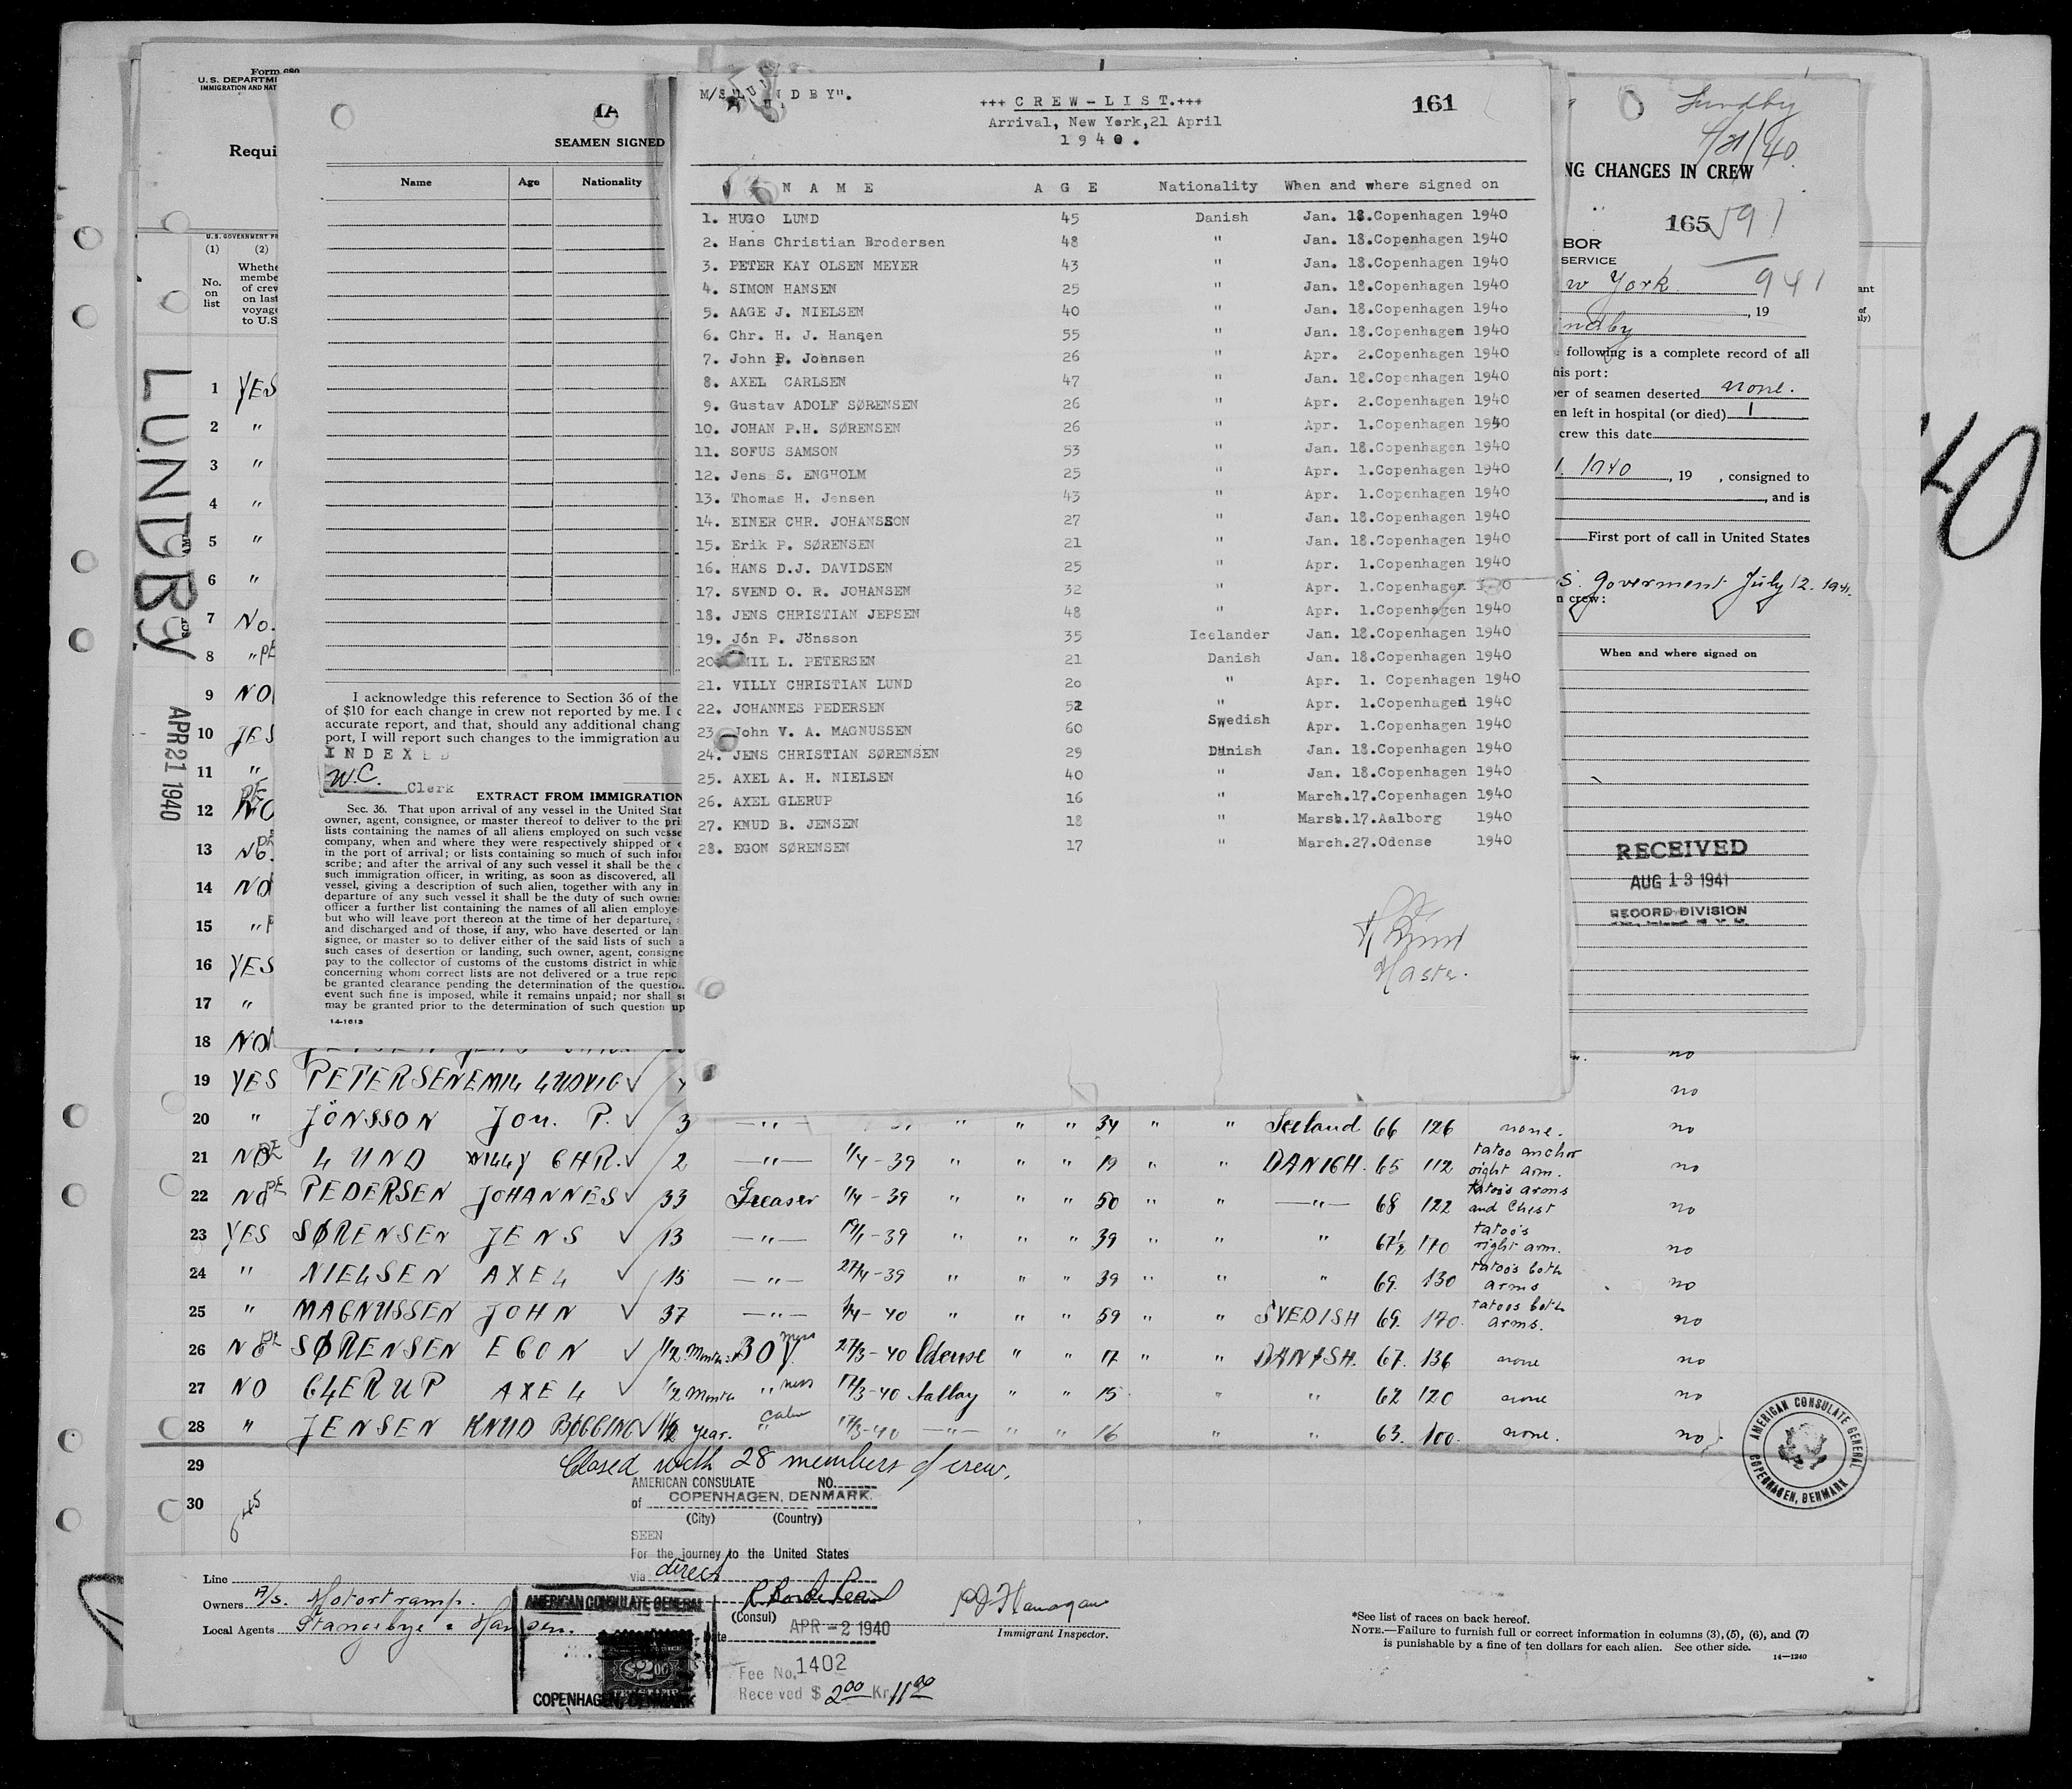 Form 680
U.S. DEPARTM
IMMIGRATION AND NAT
Requi
U.S. GOVERNMENT PR
(1) (2)
No. on list
Whethe
membe
of crew
on last
voyage
to U.S
LUNDBY
APR 21 1940
1 YES
2 "
3 "
4 "
5 "
6 "
7 No.
8 " PE
9 NO
10 YES
11 "
12 NO PE
13 No. PE
14 NO
15 "
16 YES
17 "
18 NO
1A
SEAMEN SIGNED
Name Age Nationality
I acknowledge this reference to Section 36 of the
of $10 for each change in crew not reported by me. I
accurate report, and that, should any additional chang
port, I will report such changes to the immigration au
INDEXED
W.C. Clerk
EXTRACT FROM IMMIGRATION
Sec. 36. That upon arrival of any vessel in the United Stat
owner, agent, consignee, or master thereof to deliver to the pri
lists containing the names of all aliens employed on such vesse
company, when and where they were respectively shipped or
in the port of arrival; or lists containing so much of such infor
scribe; and after the arrival of any such vessel it shall be the
such immigration officer, in writing, as soon as discovered, all
vessel, giving a description of such alien, together with any in
departure of any such vessel it shall be the duty of such owne
officer a further list containing the names of all alien employe
but who will leave port thereon at the time of her departure,
and discharged and of those, if any, who have deserted or lan
signee, or master so to deliver either of the said lists of such a
such cases of desertion or landing, such owner, agent, consigne
pay to the collector of customs of the customs district in whic
concerning whom correct lists are not delivered or a true repo
be granted clearance pending the determination of the questio
event such fine is imposed, while it remains unpaid; nor shall su
may be granted prior to the determination of such question up
14-1613
M/S "LUNDBY".
+++ CREW-LIST.+++
161
Arrival, New York,21 April
1940.
NAME AGE Nationality When and where signed on
1. HUGO LUND 45 Danish Jan. 18.Copenhagen 1940
2. Hans Christian Brodersen 48 " Jan. 18.Copenhagen 1940
3. PETER KAY OLSEN MEYER 43 " Jan. 18.Copenhagen 1940
4. SIMON HANSEN 25 " Jan. 18.Copenhagen 1940
5. AAGE J. NIELSEN 40 " Jan. 18.Copenhagen 194o
6. Chr. H. J. Hansen 55 " Jan. 18.Copenhagen 1940
7. John P. Joensen 26 " Apr. 2.Copenhagen 1940
8. AXEL CARLSEN 47 " Jan. 18.Copenhagen 1940
9. Gustav ADOLF SØRENSEN 26 " Apr. 2.Copenhagen 1940
10. JOHAN P.H. SØRENSEN 26 " Apr. 1.Copenhagen 1940
11. SOFUS SAMSON 53 " Jan. 18.Copenhagen 1940
12. Jens S. ENGHOLM 25 " Apr. 1.Copenhagen 1940
13. Thomas H. Jensen 43 " Apr. 1.Copenhagen 1940
14. EINER CHR. JOHANSSON 27 " Jan. 18.Copenhagen 1940
15. Erik P. SØRENSEN 21 " Jan. 18.Copenhagen 1940
16. HANS D.J. DAVIDSEN 25 " Apr. 1.Copenhagen 1940
17. SVEND O. R. JOHANSEN 32 " Apr. 1.Copenhagen 1940
18. JENS CHRISTIAN JEPSEN 48 " Apr. 1.Copenhagen 1940
19. Jón P. Jönsson 35 Icelander Jan. 18.Copenhagen 1940
20. EMIL L. PETERSEN 21 Danish Jan. 18.Copenhagen 1940
21. VILLY CHRISTIAN LUND 2o " Apr. 1. Copenhagen 1940
22. JOHANNES PEDERSEN 52 " Apr. 1.Copenhagen 1940
23. John V. A. MAGNUSSEN 60 Swedish Apr. 1.Copenhagen 1940
24. JENS CHRISTIAN SØRENSEN 29 Danish Jan. 18.Copenhagen 1940
25. AXEL A. H. NIELSEN 40 " Jan. 18.Copenhagen 1940
26. AXEL GLERUP 16 " March.17.Copenhagen 1940
27. KNUD B. JENSEN 18 " Marsh.17.Aalborg 1940
28. EGON SØRENSEN 17 " March.27.Odense 1940
H Lund
Master.
Lundby
4/21/40.
NG CHANGES IN CREW
165 591
BOR
SERVICE
w York 941
, 19
ndby
following is a complete record of all
his port:
er of seamen deserted none.
en left in hospital (or died) 1
crew this date
1940 , 19 , consigned to
, and is
First port of call in United States
S. Goverment July 12. 1941.
n crew:
When and where signed on
RECEIVED
AUG 13 1941
RECORD DIVISION
ant
of
ly)
40
no
19 YES PETERSEN EMIL LUDVIG ✓ no
20 " JÖNSSON Jon. P. ✓ 3 —"— " " " 34 " " Iceland 66 126 none. no
21 NO PE LUND WILLY CHR. ✓ 2 —"— 1/4-39 " " " 19 " " DANISH. 65 112 tatoo anchor right arm. no
22 NO PE PEDERSEN JOHANNES ✓ 33 Greaser 1/4-39 " " " 50 " " —"— 68 122 tatoo's arms and Chest no
23 YES SØRENSEN JENS ✓ 13 —"— 19/1-39 " " " 39 " " " 67½ 170 tatoo's right arm. no
24 " NIELSEN AXEL ✓ 15 —"— 27/4-39 " " " 39 " " " 69. 130 tatoo's both arms no
25 " MAGNUSSEN JOHN ✓ 37 —"— 1/4-40 " " " 59 " " SVEDISH 69. 170. tatoos both arms. no
26 NO PE SØRENSEN EGON ✓ 1/2 Month BOY. mess 27/3-40 Odense " " 17 " " DANISH. 67. 136 none no
27 NO GLERUP AXEL ✓ 1/2 Month " mess 17/3-40 Aalborg " " 15 " " 62 120 none no
28 " JENSEN KNUD BØGGING ✓ 1½ year. " Cabin 17/3-40 —"— " " 16 " " 63. 100. none. no
29 Closed with 28 members of crew.
30
AMERICAN CONSULATE NO.
of COPENHAGEN, DENMARK.
(City) (Country)
SEEN
For the journey to the United States
via direct
(Consul)
Date APR -2 1940
Fee No. 1402
Received $ 2 00 Kr 11 00
AMERICAN CONSULATE GENERAL
$2.00
COPENHAGEN, DENMARK
Line
Owners A/S. Motortramp.
Local Agents Stangebye & Hansen.
P J Flanagan
Immigrant Inspector.
AMERICAN CONSULATE GENERAL COPENHAGEN, DENMARK
*See list of races on back hereof.
NOTE.—Failure to furnish full or correct information in columns (3), (5), (6), and (7)
is punishable by a fine of ten dollars for each alien. See other side.
14—1240